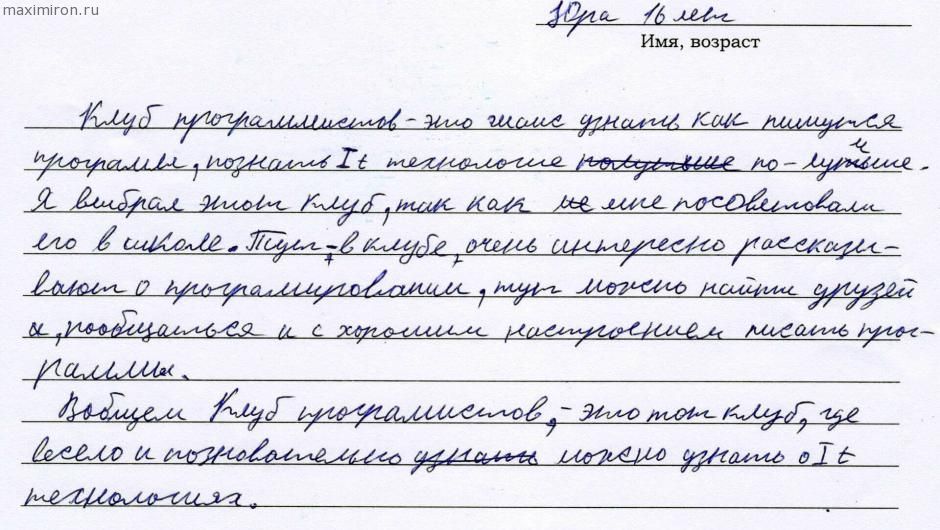 maximiron.ru
Юра 16 лет
Имя, возраст
Клуб программистов - это шанс узнать как пишутся
програмы, познать It технологие по-лучьше.
Я выбрал этот клуб, так как мне посоветовали
его в школе. Тут, - в клубе, очень интересно рассказы-
вают о програмировании, тут можно найти друзей
и, пообщаться и с хорошим настроением писать прог-
раммы.
Вобщем Клуб програмистов, - это тот клуб, где
весело и познавательно можно узнать о It
технологиях.